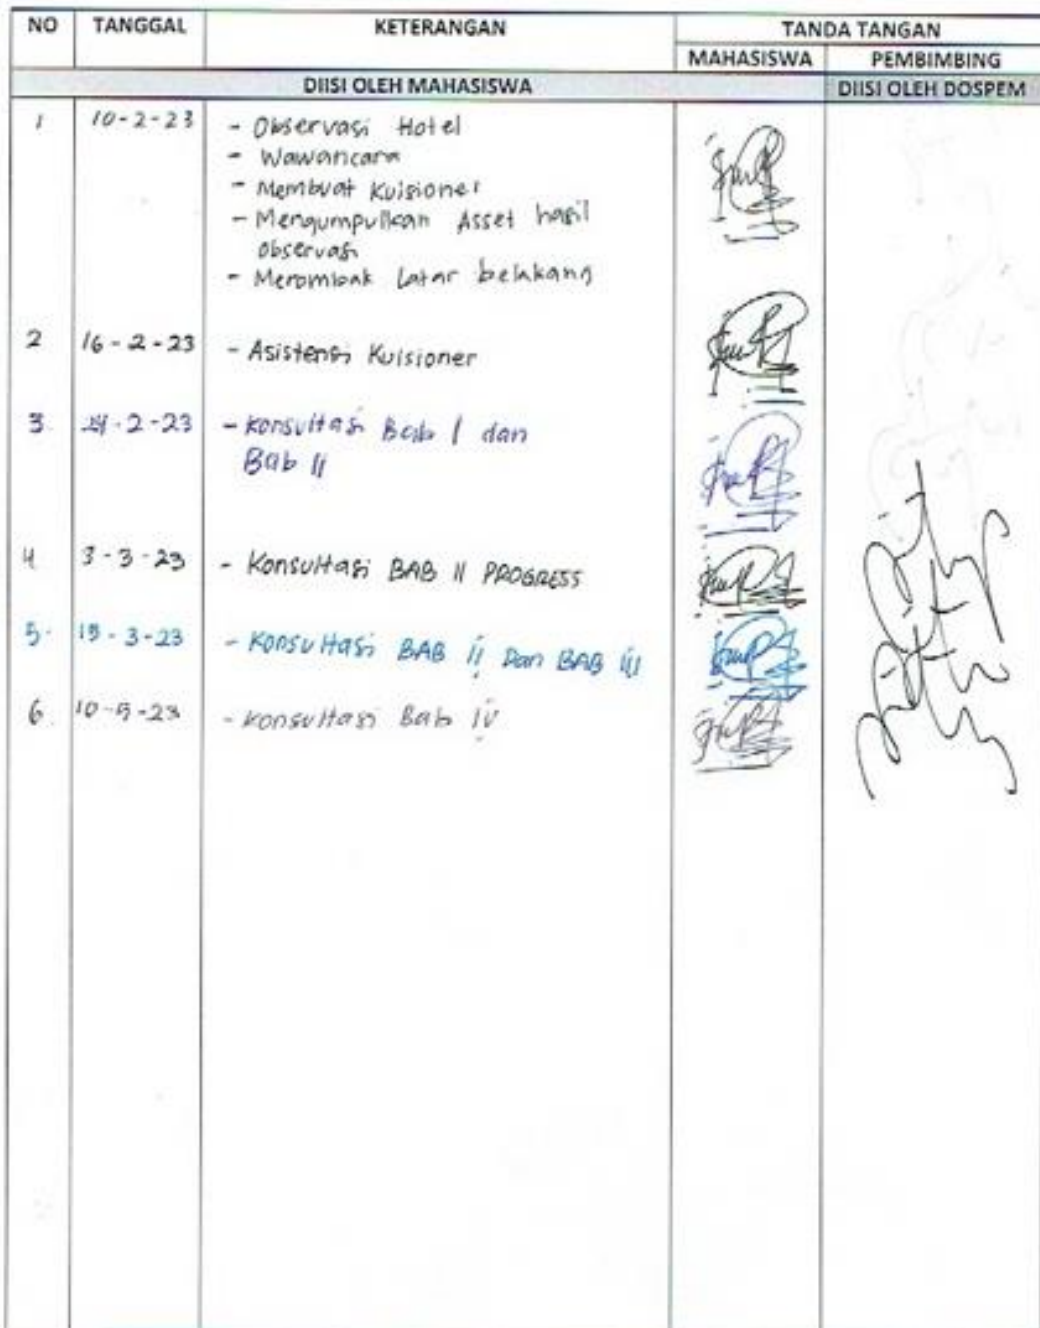 NO TANGGAL KETERANGAN TANDA TANGAN
MAHASISWA PEMBIMBING
DIISI OLEH MAHASISWA DIISI OLEH DOSPEM
1 10-2-23 - Observasi Hotel
- Wawancara
- Membuat Kuisioner
- Mengumpulkan Asset hasil
observasi
- Merombak Latar belakang
2 16-2-23 - Asistensi Kuisioner
3. 24-2-23 - Konsultasi Bab I dan
Bab II
4 3-3-23 - Konsultasi BAB II PROGRESS
5. 15-3-23 - Konsultasi BAB II Dan BAB III
6. 10-5-23 - Konsultasi Bab IV